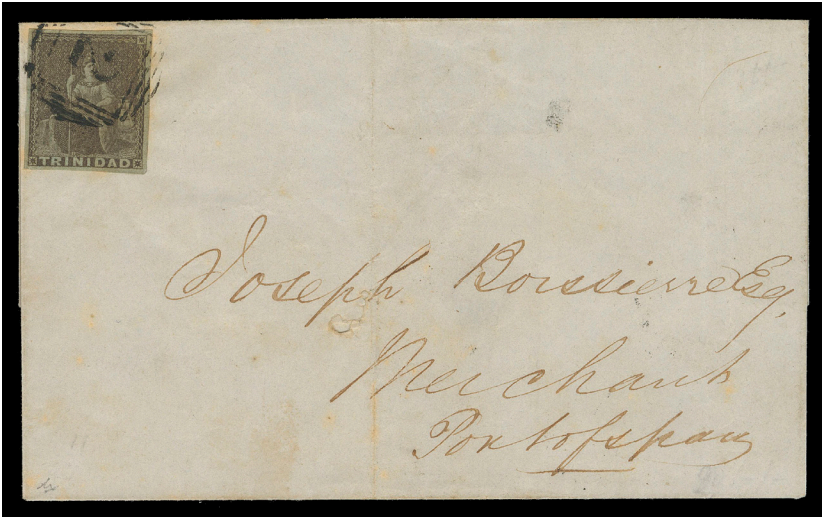 TRINIDAD
Joseph Boissierre Esq.
Merchant
Port of Spain